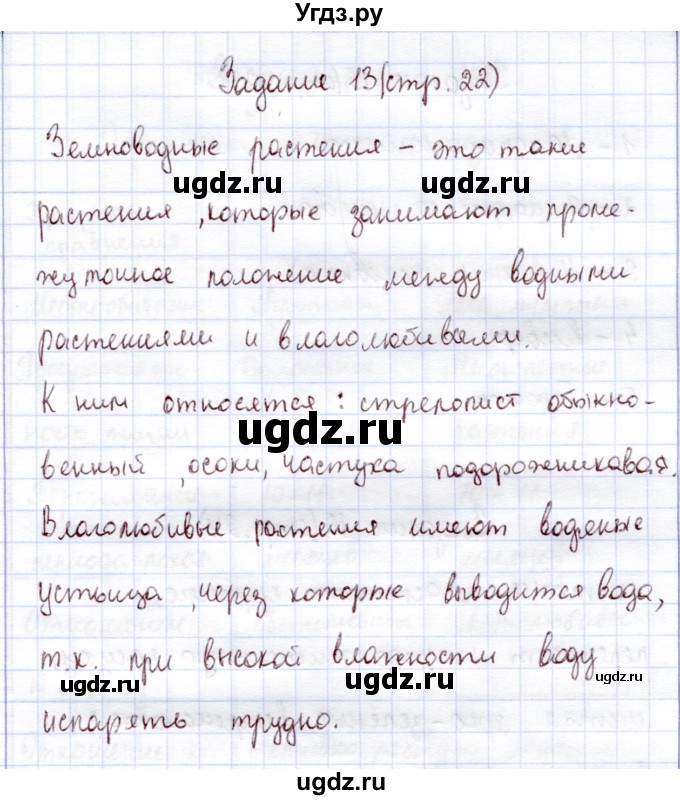 Угдз.ру
Задание 13(стр. 22)
Земноводные растения – это такие
ugdz.ru ugdz.ru
растения ,которые занимают проме-
жуточное положение между водными
растениями и влаголюбивыми.
К ним относятся: стрелолист обыкно-
ugdz.ru
венный ,осоки, частуха подорожникавая.
Влаголюбивые растения имеют водяные
устьица ,через которые выводится вода,
т.к. при высокой влажности воду
ugdz.ru ugdz.ru
испарять трудно.
ugdz.ru